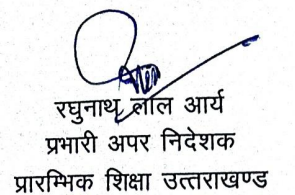 रघुनाथ लाल आर्य
प्रभारी अपर निदेशक
प्रारम्भिक शिक्षा उत्तराखण्ड